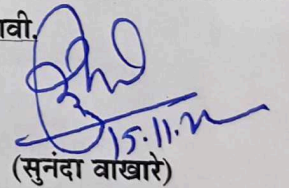 वी.
15.11.22
(सुनंदा वाखारे)